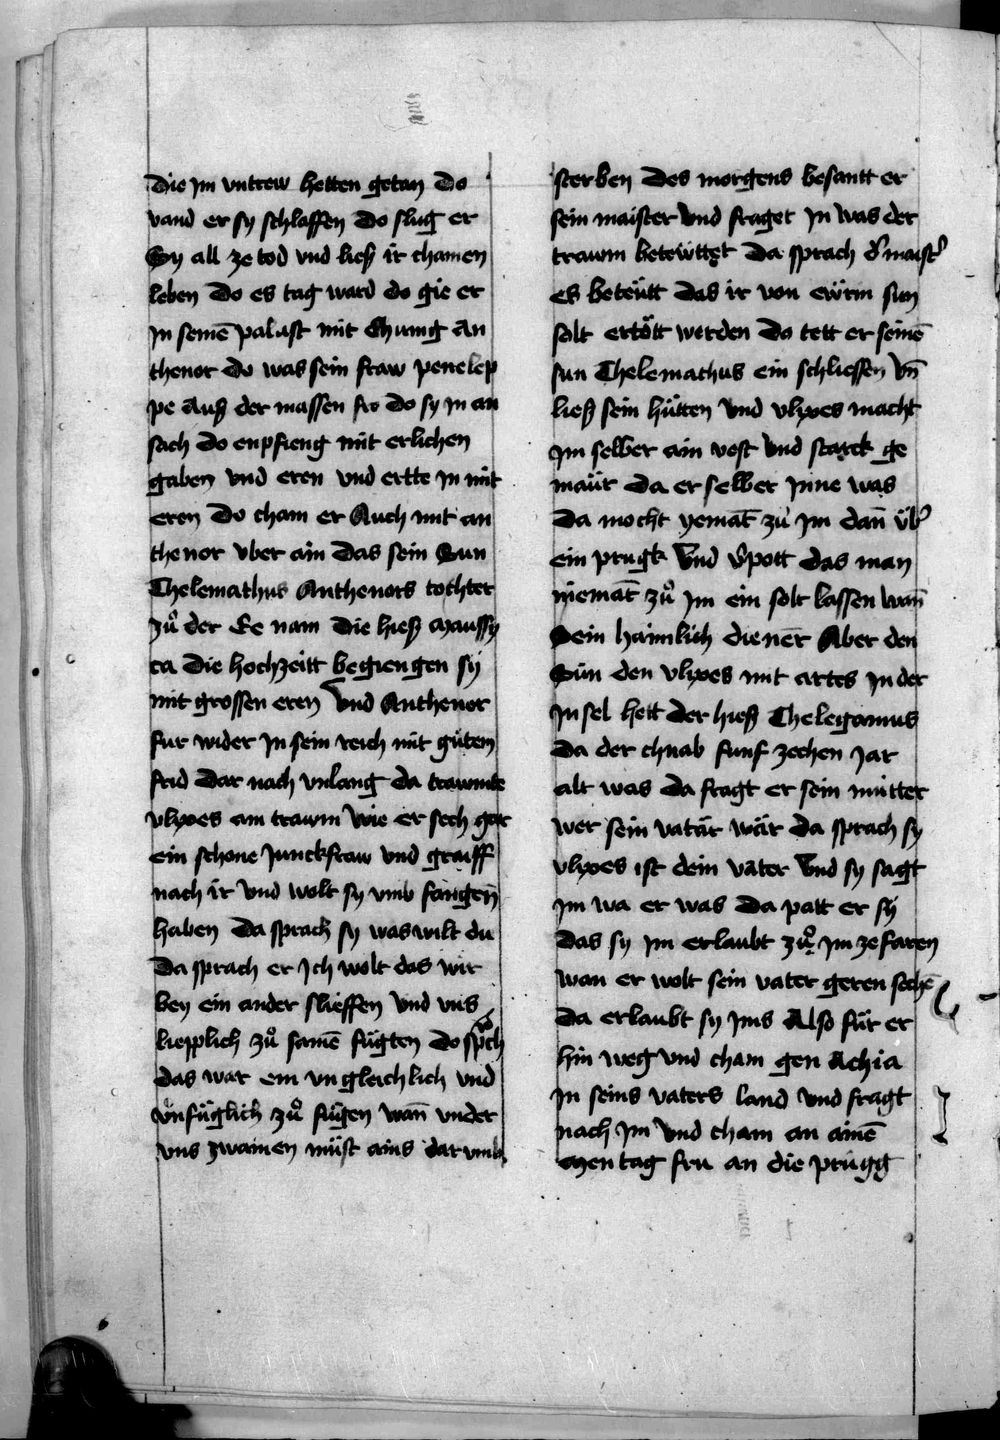 die jm vntrew hetten getan do
vand er sy schlaffen do slug er
Sy all ze tod vnd ließ ir chamen
leben do es tag ward do gie er
jn seinē palast mit Chunig an
thenor do was sein fraw penelep
pe auß der massen fro do sy jn an
sach do enpfieng mit erlichen
gaben vnd eren vnd ertte jn mit
eren do cham er Auch mit an
thenor vber ain das sein Sun
Thelemathus Anthenors tochter
zů der Ee nam die hieß Maussy
ca die hochzeitt begiengen sÿ
mit grossen eren vnd Anthenor
fur wider jn sein reich mit gůtem
frid dar nach vnlang da trawmte
vlyxes ain trawm wie er sech gar
ein schone junckfraw vnd graiff
nach ir vnd wolt sy vmb fangen
haben da sprach sy was wilt du
da sprach er jch wolt das wir
bey ein ander slieffen vnd vns
liepplich zů samē fůgten do spch
das war ein vngleichlich vnd
vnfůglich zů fůgen wañ vnder
vns zwainen můst ains darvmb
sterben des morgens besantt er
sein maister vnd fraget jn was der
trawm betewttet da sprach d' maist'
es betëutt das ir von ewrm sun
solt ertött werden da tett er seinē
sun Thelemathus ein schliessen vñ
ließ sein hütten vnd vlyxes macht
jm selber ain vest vnd starck ge
maür da er selber jnne was
da mocht yemāt zů jm dañ üb'
ein prugk vnd v'pott das man
niemāt zů jm ein solt lassen wañ
Sein haimlich diener Aber den
Sün den vlyxes mit artes jn der
jnsel hett der hieß Thelegamus
da der chnab funf zechen jar
alt was da fragt er sein můtter
wer sein vatär wär da sprach sy
vlyxes ist dein väter vnd sy sagt
jm wa er was da patt er sÿ
das sy jm erlaubt zů jm ze faren
wan er wolt sein vater geren sechē
da erlaubt sy jms Also für er
hin weg vnd cham gen Achia
jn seins vaters land vnd fragt
nach jm vnd cham an ainē
Mentag fru an die prügg